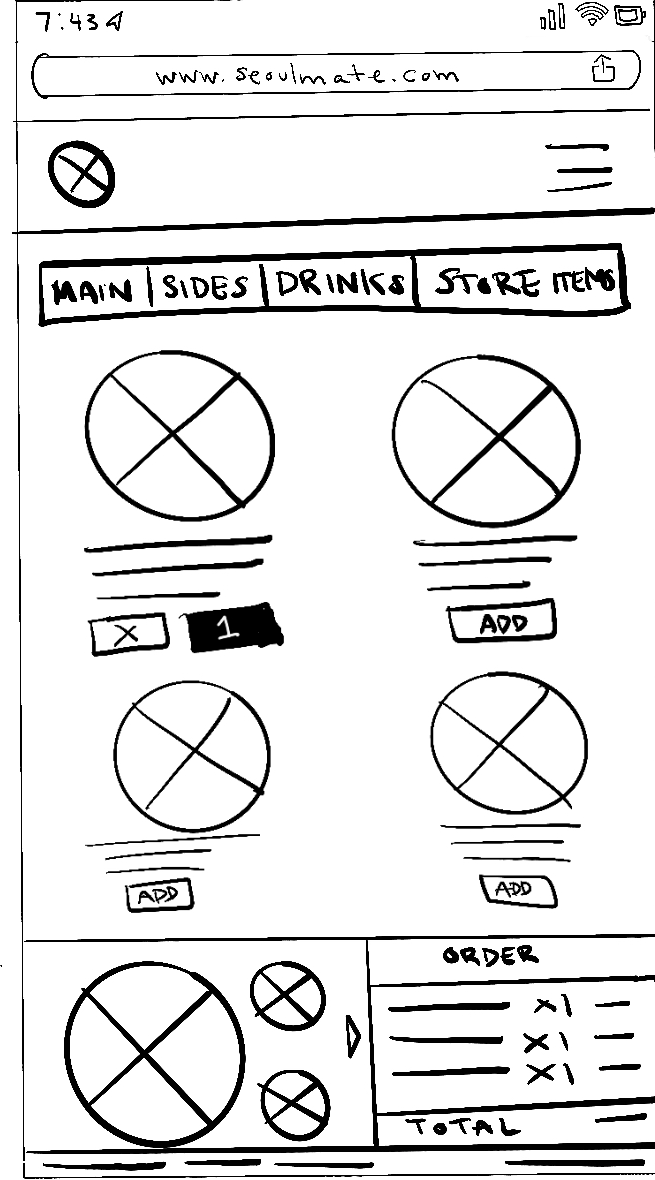 7:43
www.seoulmate.com
MAIN SIDES DRINKS STORE ITEMS
X 1
ADD
ADD
ADD
ORDER
X1
X1
X1
TOTAL